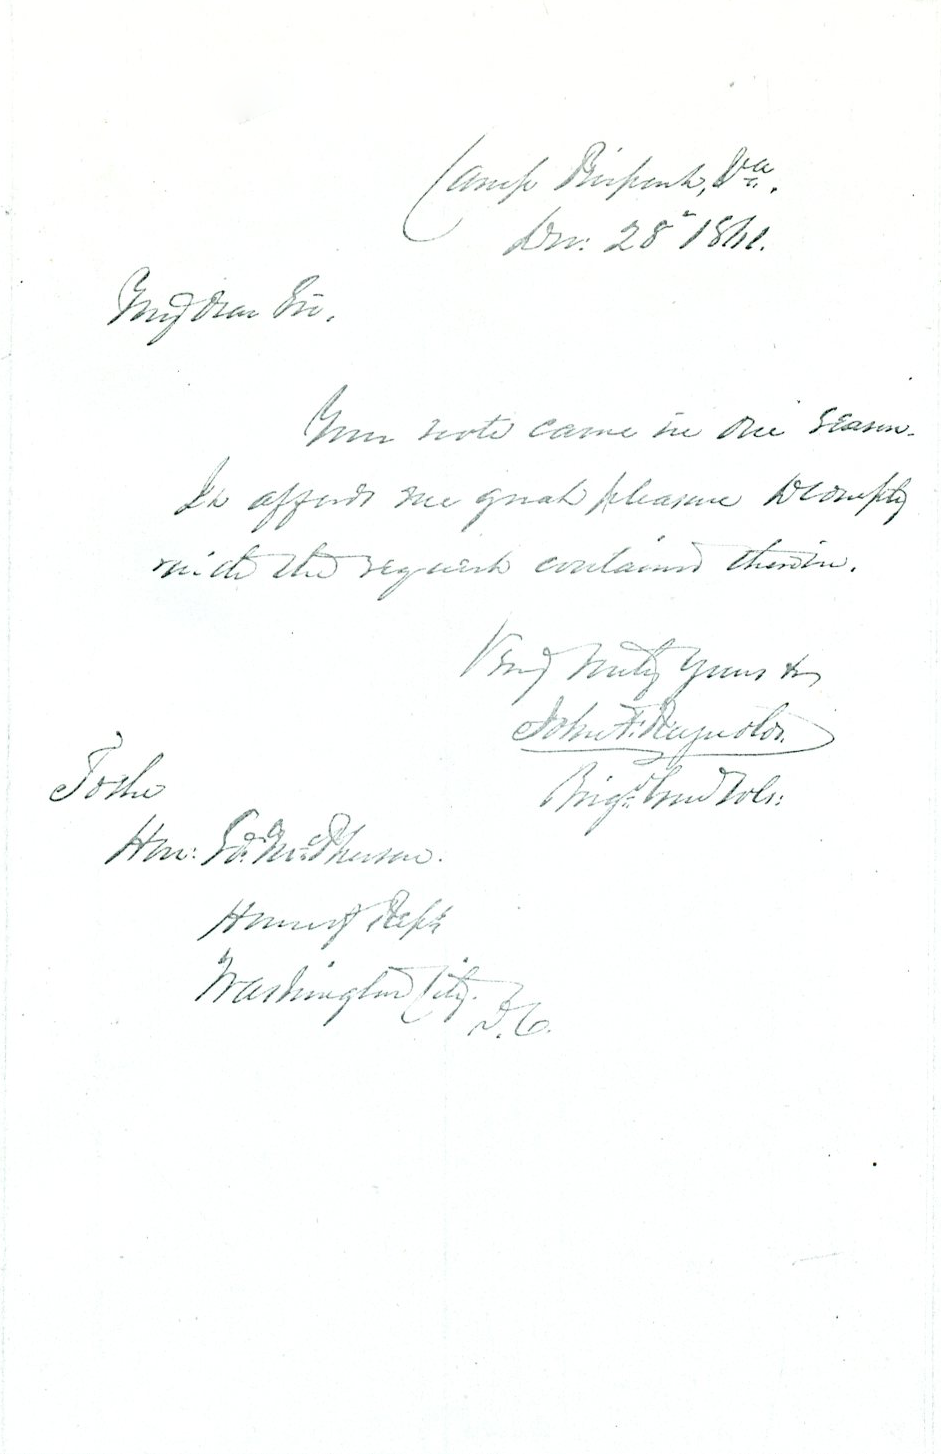 Camp Pierpont, Va.
Dec: 28th 1861.
My dear Sir,
Your note came in due season.
It affords me great pleasure to comply
with the request contained therein.
Very truly yours &c
John F. Reynolds.
Brigd. Genl Vols:
To the
Hon: Ed. McPherson.
House of Reps
Washington City.
D.C.